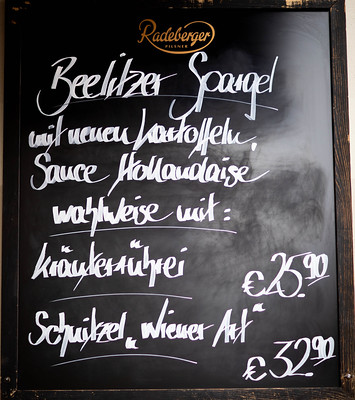 Radeberger
PILSNER
Beelitzer Spargel
mit neuen Kartoffeln,
Sauce Hollandaise
wahlweise mit:
Kräuterrührei
€ 25.90
Schnitzel „Wiener Art“
€ 32.90